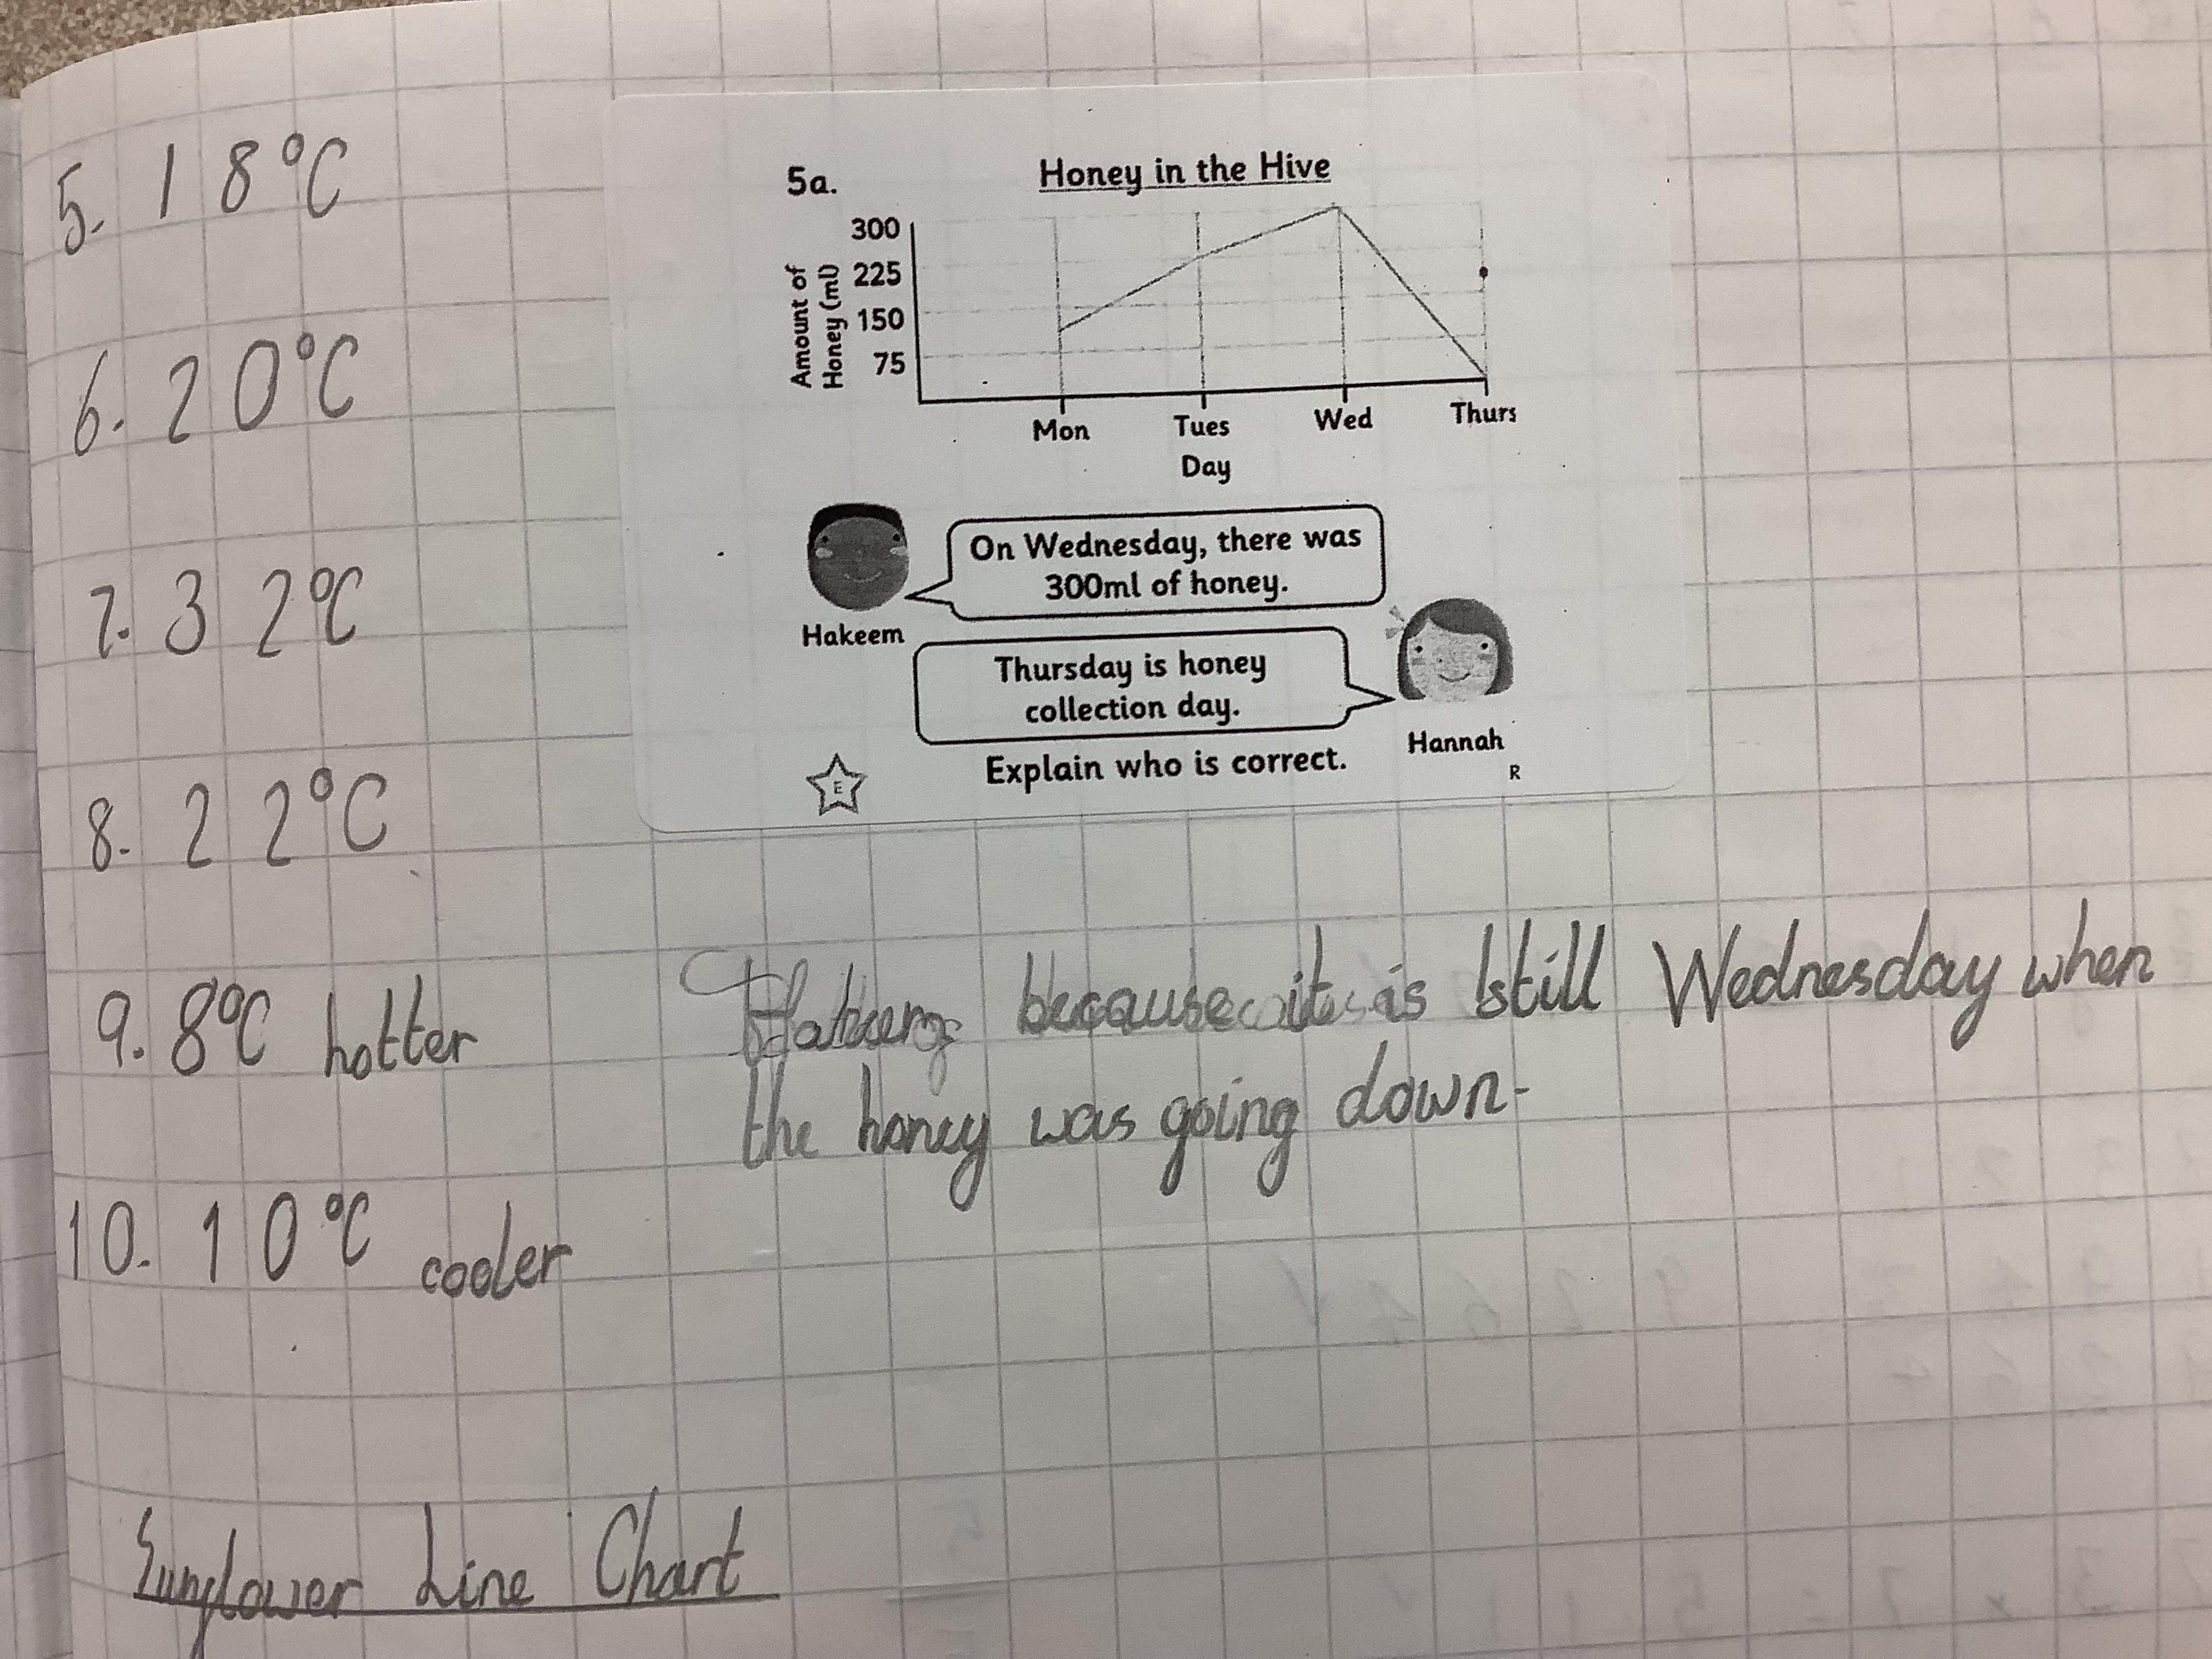 5. 18°C
6. 20°C
7. 32°C
8. 22°C
9. 8°C hotter
10. 10°C cooler
5a. Honey in the Hive
Amount of
Honey (ml)
300
225
150
75
Mon Tues Wed Thurs
Day
On Wednesday, there was
300ml of honey.
Hakeem
Thursday is honey
collection day.
Hannah
Explain who is correct.
E
R
because it is still Wednesday when
the honey was going down.
Sunflower Line Chart